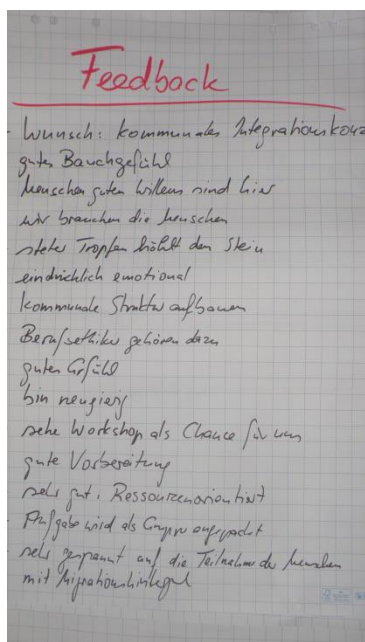 Feedback
- Wunsch: kommunales Integrationskonz
gutes Bauchgefühl
Menschen guten Willens sind hier
wir brauchen die Menschen
- steter Tropfen höhlt den Stein
eindrücklich emotional
kommunale Struktur aufbauen
Berufsethiker gehören dazu
gutes Gefühl
bin neugierig
sehe Workshop als Chance für uns
gute Vorbereitung
sehr gut, Ressourcenorientiert
- Aufgabe wird als Gruppe angepackt
- sehr gespannt auf die Teilnahme der Menschen
mit Migrationshintergrund